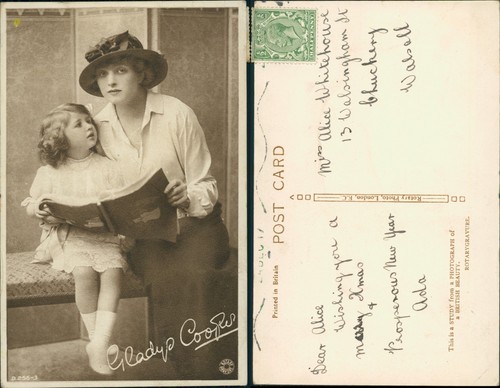 Gladys Cooper
POST CARD
Printed in Britain
HALFPENNY
Miss Alice Whitehouse
13 Walsingham St
Chuckery
Walsall
Rotary Photo, London, E.C.
This is a STUDY from a PHOTOGRAPH of
a BRITISH BEAUTY.
ROTARYGRAVURE.
Dear Alice
Wishing you a
merry Xmas
&
Prosperous New Year
Ada